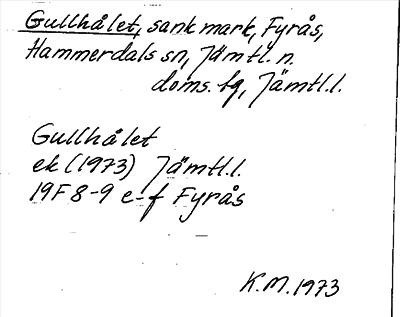 Gullhålet, sank mark, Fyrås,
Hammerdals sn, Jämtl. n.
doms. tg, Jämtl.l.
Gullhålet
ek (1973) Jämtl.l.
19F 8-9 e-f Fyrås
K.M. 1973